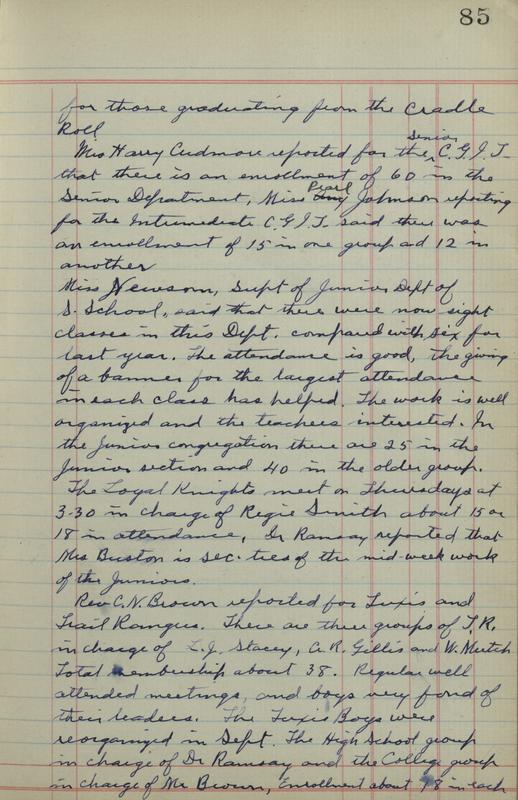 85
for those graduating from the Cradle
Roll
Mrs Harry Cudmore reported for the senior C.G.I.T.
that there is an enrollment of 60 in the
Senior Department, Miss Pearl Johnson reporting
for the Intermediate C.G.I.T. said there was
an enrollment of 15 in one group ad 12 in
another
Miss Newsom, Supt of Junior Dept of
S. School, said that there were now eight
classes in this Dept. compared with six for
last year. The attendance is good, the giving
of a banner for the largest attendance
in each class has helped. The work is well
organized and the teachers interested. In
the Junior congregation there are 25 in the
Junior section and 40 in the older group.
The Loyal Knights meet on Thursdays at
3-30 in charge of Regie Smith about 15 or
18 in attendance, Dr Ramsay reported that
Mrs Buston is sec-treas of the mid-week work
of the Juniors.
Rev C.N. Brown reported for Tuxis and
Trail Rangers. There are three groups of T.R.
in charge of L.J. Stacey, A.R. Gillis and W. Mutch
Total membership about 38. Regular well
attended meetings, and boys very fond of
their leaders. The Tuxis Boys were
reorganized in Sept. The High School group
in charge of Dr Ramsay and the College group
in charge of Mr Brown, Enrollment about 18 in each